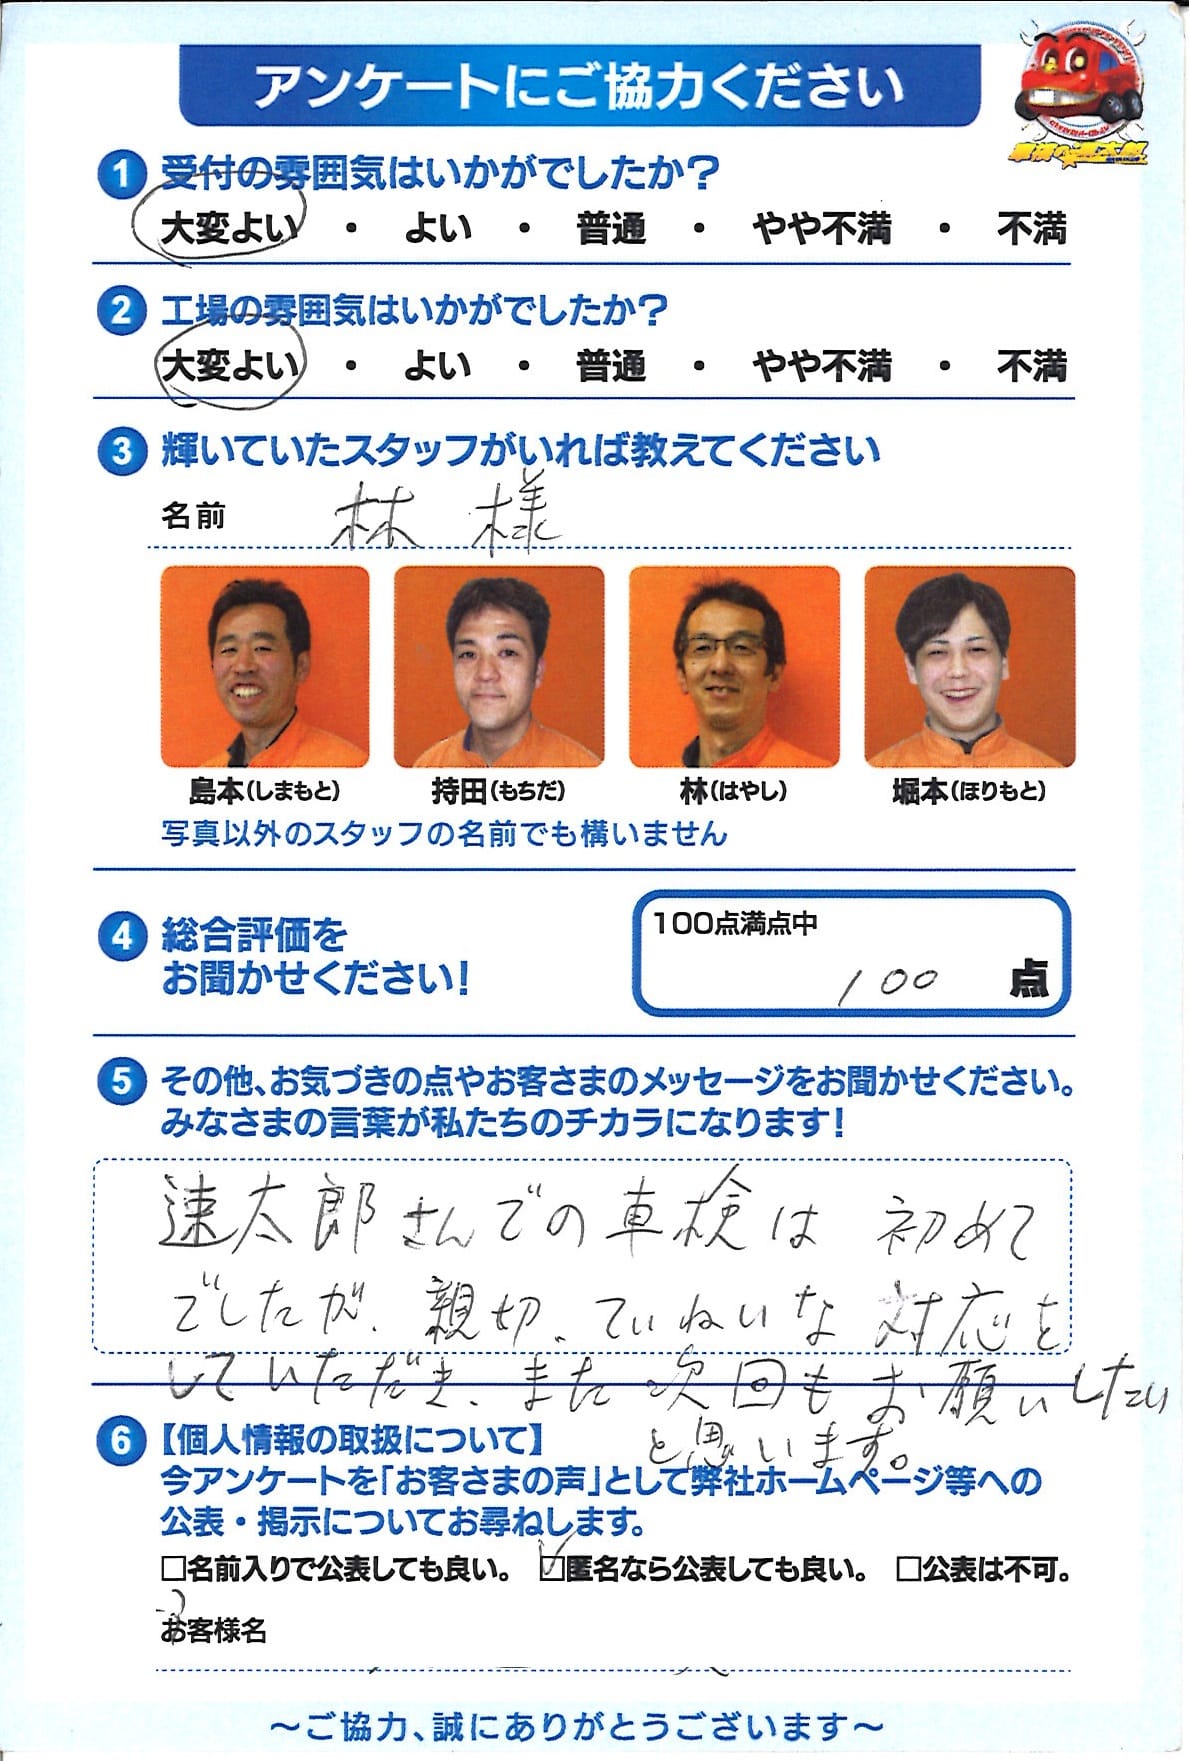 アンケートにご協力ください
車検の速太郎
1 受付の雰囲気はいかがでしたか？
大変よい ・ よい ・ 普通 ・ やや不満 ・ 不満
2 工場の雰囲気はいかがでしたか？
大変よい ・ よい ・ 普通 ・ やや不満 ・ 不満
3 輝いていたスタッフがいれば教えてください
名前 林 様
島本（しまもと） 持田（もちだ） 林（はやし） 堀本（ほりもと）
写真以外のスタッフの名前でも構いません
4 総合評価を
お聞かせください！
100点満点中
100 点
5 その他、お気づきの点やお客さまのメッセージをお聞かせください。
みなさまの言葉が私たちのチカラになります！
速太郎さんでの車検は 初めて
でしたが、親切、ていねいな対応を
していただき、また次回もお願いしたい
と思います。
6 【個人情報の取扱について】
今アンケートを「お客さまの声」として弊社ホームページ等への
公表・掲示についてお尋ねします。
□名前入りで公表しても良い。 ☑匿名なら公表しても良い。 □公表は不可。
お客様名
～ご協力、誠にありがとうございます～